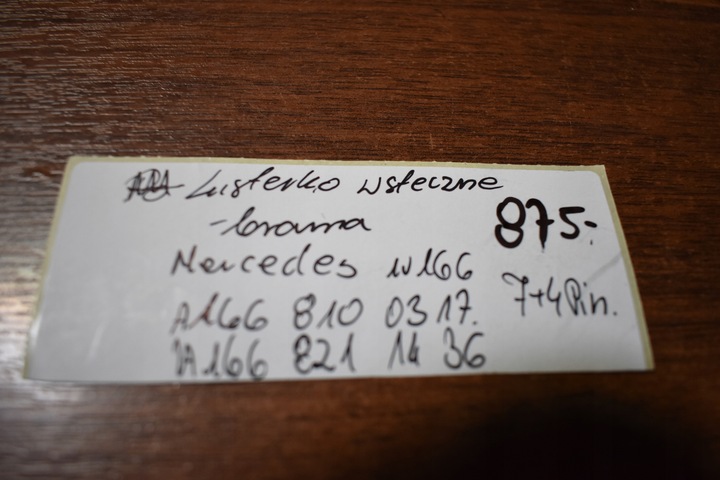 Lusterko wsteczne
- brama
875.-
Mercedes W166
7+4 Pin.
A166 810 03 17.
A166 821 14 36